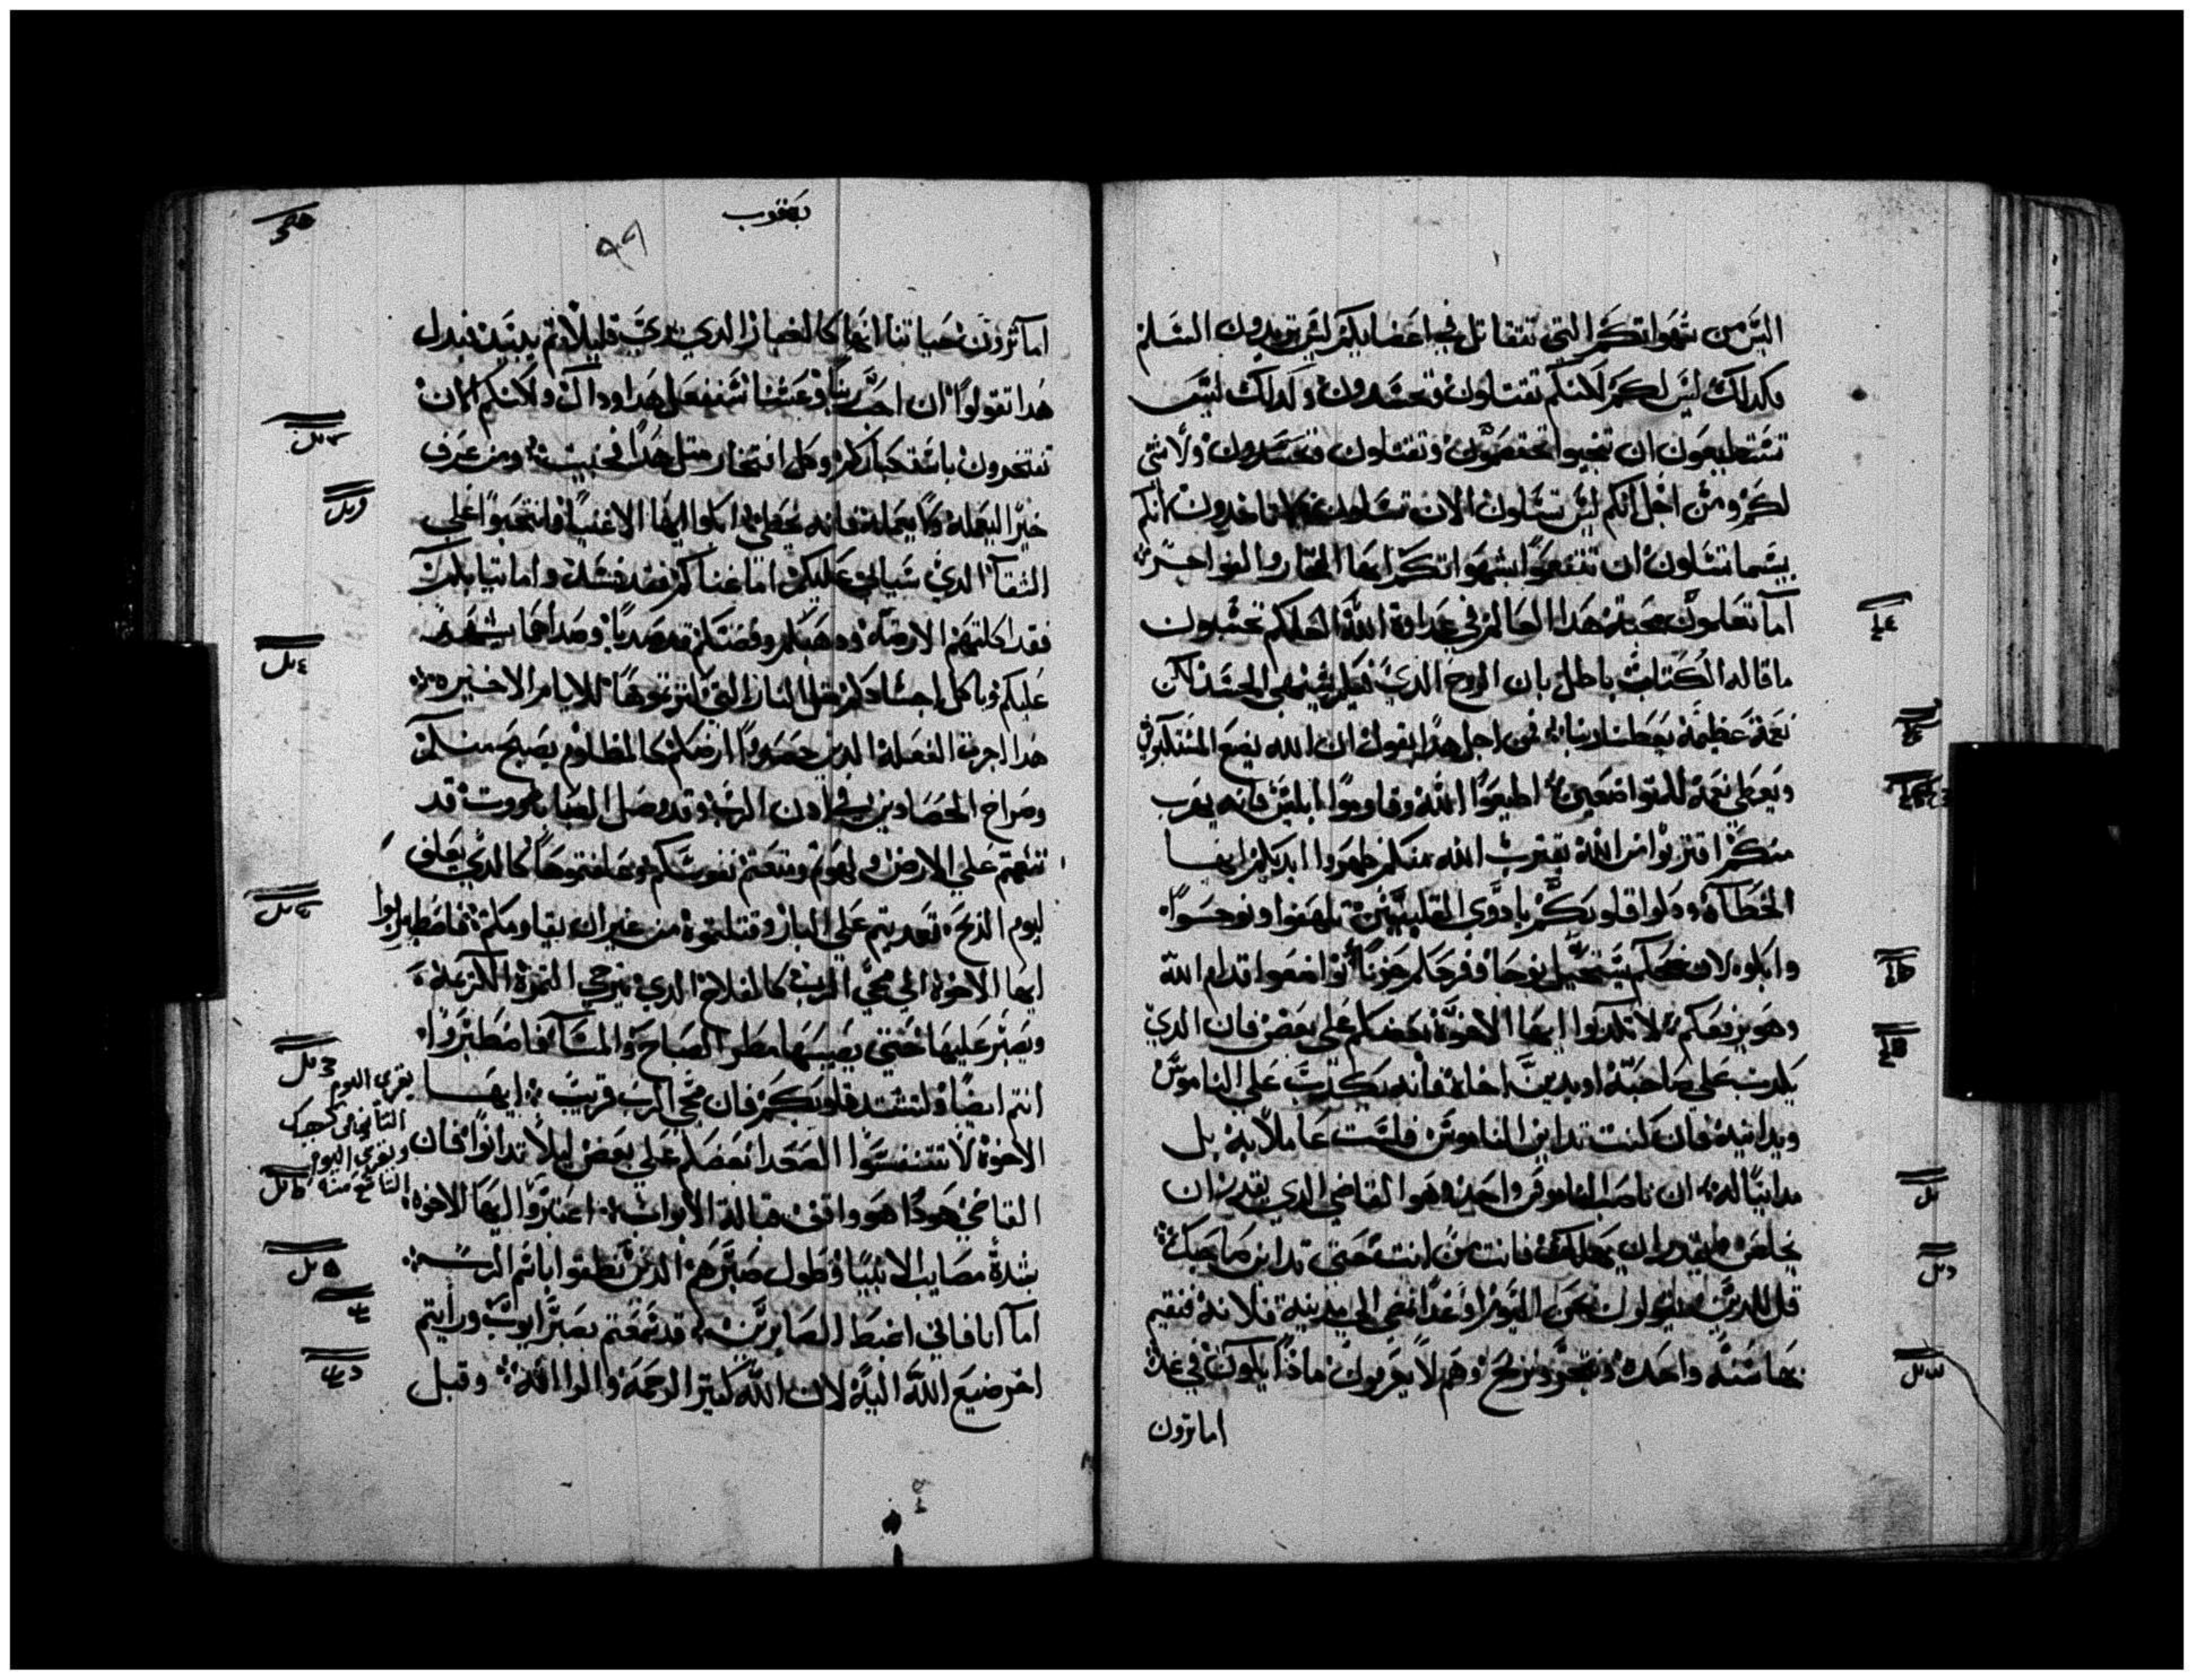 اليس من شهواتكم التي تتقاتل في اعضايكم ليس تريدون السلم
فكدلك ليس لكم لانكم تقتلون وتحسدون وكدلك ليس
تستطيعون ان تخيبوا تختصمون وتقتلون وتحسدون ولا شي
لكم ومن اجل انكم ليس تسلون الان تسلون فما تاخدون انكم
بيسما تسلون ان تتنعموا بشهواتكم ايها الفجار والفواجر
اما تعلمون محبة هدا العالم في عداوة الله لعلكم تحسبون
ما قاله الكتاب باطل بان الروح الدي فيكم يشتهي الحسد لكن
نعمة عظيمة يعطينا ربنا فمن اجل هدا يقول ان الله يضع المستكبرين
ويعطي نعمة للمتواضعين اطيعوا الله وقاوموا ابليس فانه يهرب
منكم اقتربوا من الله يقترب الله منكم طهروا ايديكم ايها
الخطاه ودكوا قلوبكم يا دوي القلبين تلهفوا ونوحوا
وابكوا لان ضحككم يستحيل نوحا وفرحكم حزنا تواضعوا قدام الله
وهو يرفعكم لا تكدبوا ايها الاخوة بعضكم على بعض فان الدي
يكدب على صاحبه او يدين اخاه فانه يكدب على الناموس
ويداينه فان كنت تداين الناموس فلست عاملا به بل
مداينا له ان ناصب الناموس واحد وهو القاضي الدي يقدر ان
يخلص ويقدر ان يهلك فانت من انت حتى تداين صاحبك
قل للدين يقولون نحن اليوم او غدا نمضي الى مدينة فلانة فنقيم
بها سنة واحدة ونتجر ونربح وهم لا يعرفون ماذا يكون في غد
اما ترون
يعقوب
٩٦
اما ترون حياتنا انها كالبخار الدي يرى قليلا ثم يبيد فبدل
هدا تقولوا ان احب ربنا وعشنا سنفعل هدا وداك ولاكنكم الان
تفتخرون باستكباركم وكل افتخار متل هدا فخبيت ومن عرف
خيرا ليعمله ولا يعمله فانه خطية ابكوا ايها الاغنيا وانتحبوا على
الشقا الدي سياتي عليكم اما غناكم فقد فسد واما تيابكم
فقد اكلتهم الارضه ودهبكم وفضتكم قد صديا وصداهما يشهد
عليكم وياكل اجسادكم متل النار التي كنزتموها للايام الاخيره
هدا اجرة الفعلة الدين حصدوا ارضكم كالمظلوم يصيح منكم
وصراخ الحصادين في ادن الرب وقد وصل الصباووت قد
تنعمتم على الارض ولهوتم ومتعتم نفوسكم وعلفتموها كالدي يعلف
ليوم الدبح تعديتم على البار وقتلتموه من غير ان يقاومكم فاصطبروا
ايها الاخوة الى مجي الرب كالفلاح الدي يترجى التمرة الكريمة
ويصبر عليها حتى يصيبها مطر الصباح والمسا فاصطبروا
انتم ايضا ولتشتد قلوبكم فان مجي الرب قريب ايها
الاخوة لا تتنفسوا الصعدا بعضكم على بعض ليلا تدانوا فان
القاضي هودا هو واقف قبالة الابواب اعتبروا ايها الاخوة
بشدة مصايب الانبيا وطول صبرهم الدين نطقوا باسم الرب
اما انا فاني اغبط الصابرين قد سمعتم بصبر ايوب ورايتم
اخر صنيع الله اليه لان الله كتير الرحمة والرافة وقبل
يقرى اليوم
التاني كيهك
ويقرى اليوم
التاسع منه